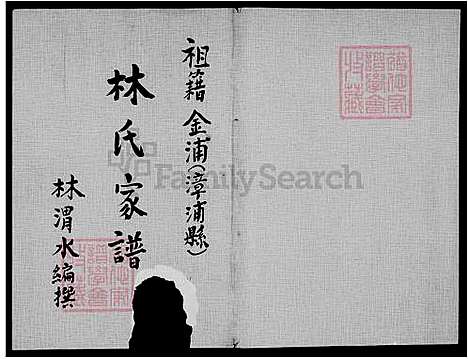 祖籍金浦(漳浦縣)
林氏家譜
林渭水編撰
FamilySearch